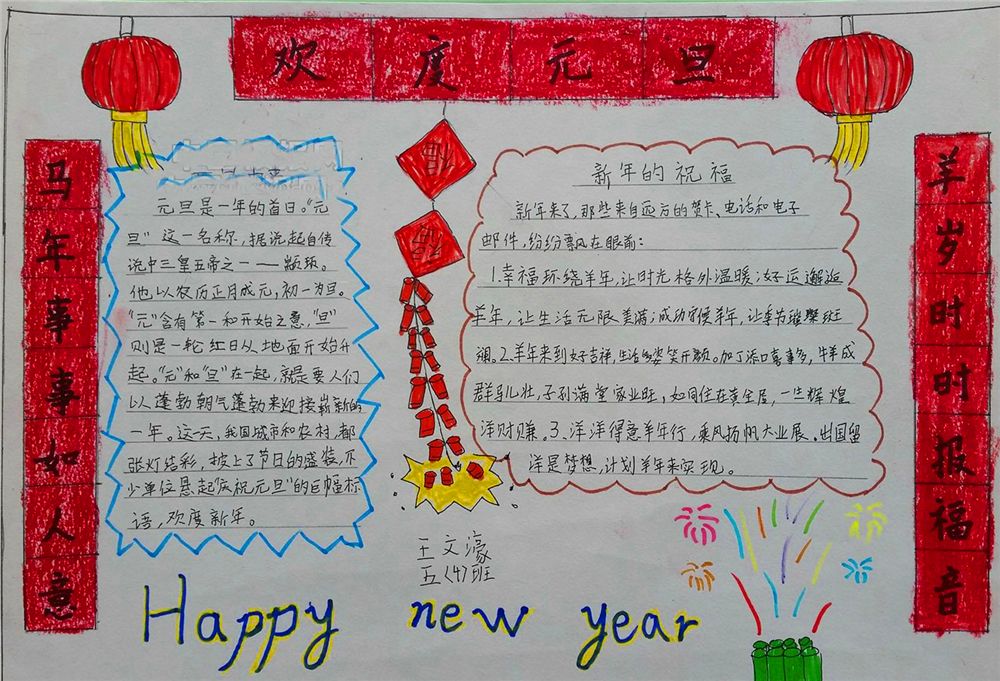 欢度元旦
马年事事如人意
元旦是一年的首日。“元
旦”这一名称，据说起自传
说中三皇五帝之一——颛顼。
他以农历正月成元，初一为旦。
“元”含有第一和开始之意，“旦”
则是一轮红日从地面开始升
起。“元”和“旦”在一起，就是要人们
以蓬勃朝气蓬勃来迎接崭新的
一年。这一天，我国城市和农村，都
张灯结彩，披上了节日的盛装，不
少单位悬起“庆祝元旦”的巨幅标
语，欢度新年。
福
新年的祝福
新年来了，那些来自远方的贺卡、电话和电子
邮件，纷纷飘在眼前：
1.幸福环绕羊年，让时光格外温暖；好运邂逅
羊年，让生活无限美满；成功守候羊年，让季节璀璨斑
斓。2.羊年来到好吉祥，生活多姿笑开颜。加丁添口喜事多，牛羊成
群马儿壮，子孙满堂家业旺，如同住在黄金屋，一生辉煌
洋财赚。3.洋洋得意羊年行，乘风扬帆大业展。出国留
洋是梦想，计划羊年来实现。
羊岁时时报福音
王文濠
五〈4〉班
Happy new year